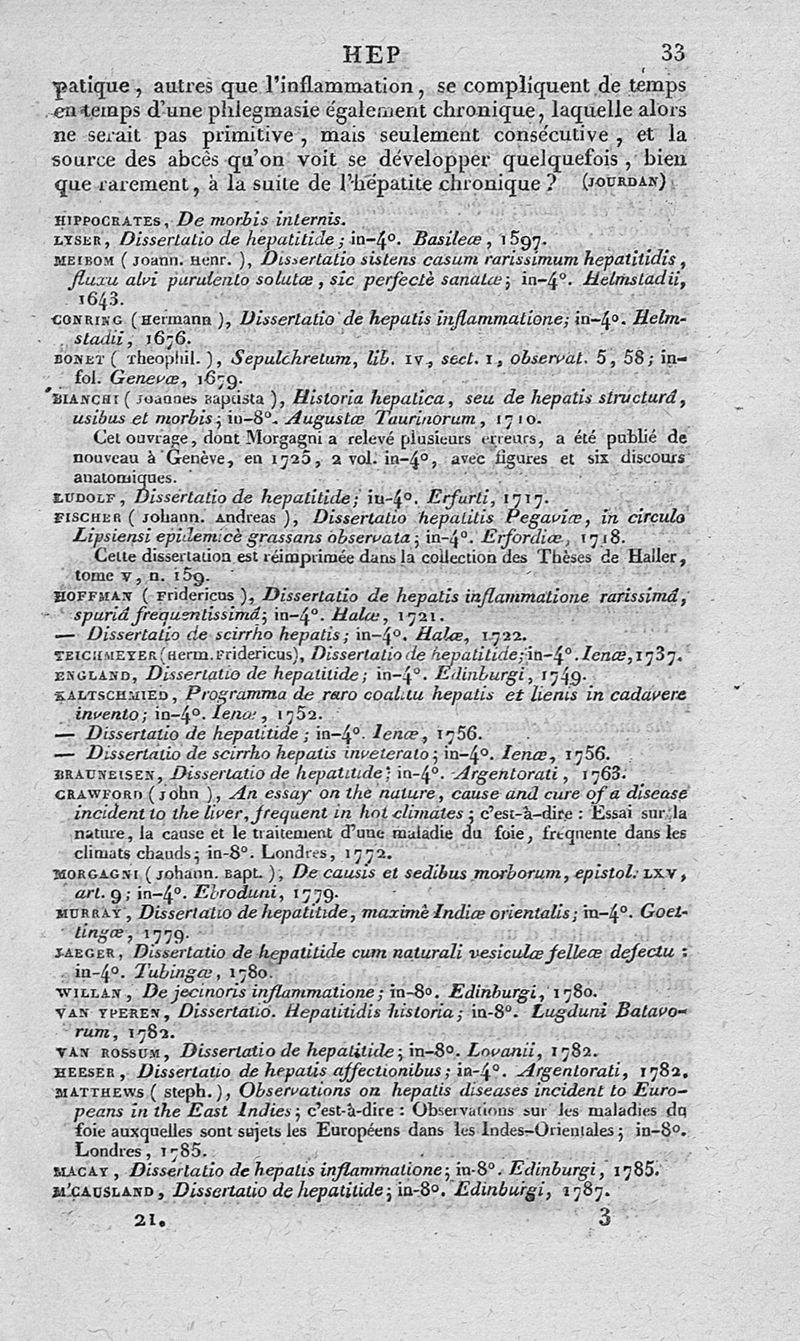 HEP 33
patique, autres que l'inflammation, se compliquent de temps
en temps d'une phlegmasie également chronique, laquelle alors
ne serait pas primitive, mais seulement consécutive, et la
source des abcès qu'on voit se développer quelquefois, bien
que rarement, à la suite de l'hépatite chronique? (JOURDAN)
HIPPOCRATES, De morbis internis.
LYSER, Dissertatio de hepatitide; in-4°. Basileæ, 1597.
MEIBOM (Joann. Henr.), Dissertatio sistens casum rarissimum hepatitidis,
fluxu alvi purulento solutæ, sic perfectè sanatæ; in-4°. Helmstadii,
1643.
CONRING (Hermann), Dissertatio de hepatis inflammatione; in-4°. Helm-
stadii, 1676.
BONET (Theophil.), Sepulchretum, lib. IV, sect. 1, observat. 5, 58; in-
fol. Genevæ, 1679.
BIANCHI (Joannes Baptista), Historia hepatica, seu de hepatis structurâ,
usibus et morbis; in-8°. Augustæ Taurinorum, 1710.
Cet ouvrage, dont Morgagni a relevé plusieurs erreurs, a été publié de
nouveau à Genève, en 1725, 2 vol. in-4°, avec figures et six discours
anatomiques.
LUDOLF, Dissertatio de hepatitide; in-4°. Erfurti, 1717.
FISCHER (Johann. Andreas), Dissertatio hepatitis Pegaviæ, in circulo
Lipsiensi epidemicè grassans observata; in-4°. Erfordiæ, 1718.
Cette dissertation est réimprimée dans la collection des Thèses de Haller,
tome V, n. 159.
HOFFMAN (Fridericus), Dissertatio de hepatis inflammatione rarissimâ,
spuriâ frequentissimâ; in-4°. Halæ, 1721.
— Dissertatio de scirrho hepatis; in-4°. Halæ, 1722.
TEICHMEYER (Herm. Fridericus), Dissertatio de hepatitide; in-4°. Ienæ, 1737.
ENGLAND, Dissertatio de hepatitide; in-4°. Edinburgi, 1749.
KALTSCHMIED, Programma de raro coalitu hepatis et lienis in cadavere
invento; in-4°. Ienæ, 1752.
— Dissertatio de hepatitide; in-4°. Ienæ, 1756.
— Dissertatio de scirrho hepatis inveterato; in-4°. Ienæ, 1756.
BRAUNEISEN, Dissertatio de hepatitide; in-4°. Argentorati, 1763.
CRAWFORD (John), An essay on the nature, cause and cure of a disease
incident to the liver, frequent in hot climates; c'est-à-dire: Essai sur la
nature, la cause et le traitement d'une maladie du foie, fréquente dans les
climats chauds; in-8°. Londres, 1772.
MORGAGNI (Johann. Bapt.), De causis et sedibus morborum, epistol. LXV,
art. 9; in-4°. Ebroduni, 1779.
MURRAY, Dissertatio de hepatitide, maximè Indiæ orientalis; in-4°. Goet-
tingæ, 1779.
JAEGER, Dissertatio de hepatitide cum naturali vesiculæ felleæ defectu:
in-4°. Tubingæ, 1780.
WILLAN, De jecinoris inflammatione; in-8°. Edinburgi, 1780.
VAN YPEREN, Dissertatio. Hepatitidis historia; in-8°. Lugduni Batavo-
rum, 1782.
VAN ROSSUM, Dissertatio de hepatitide; in-8°. Lovanii, 1782.
HEESER, Dissertatio de hepatis affectionibus; in-4°. Argentorati, 1782.
MATTHEWS (Steph.), Observations on hepatis diseases incident to Euro-
peans in the East Indies; c'est-à-dire: Observations sur les maladies du
foie auxquelles sont sujets les Européens dans les Indes-Orientales; in-8°.
Londres, 1785.
MACAY, Dissertatio de hepatis inflammatione; in-8°. Edinburgi, 1785.
M'CAUSLAND, Dissertatio de hepatitide; in-8°. Edinburgi, 1787.
21. 3